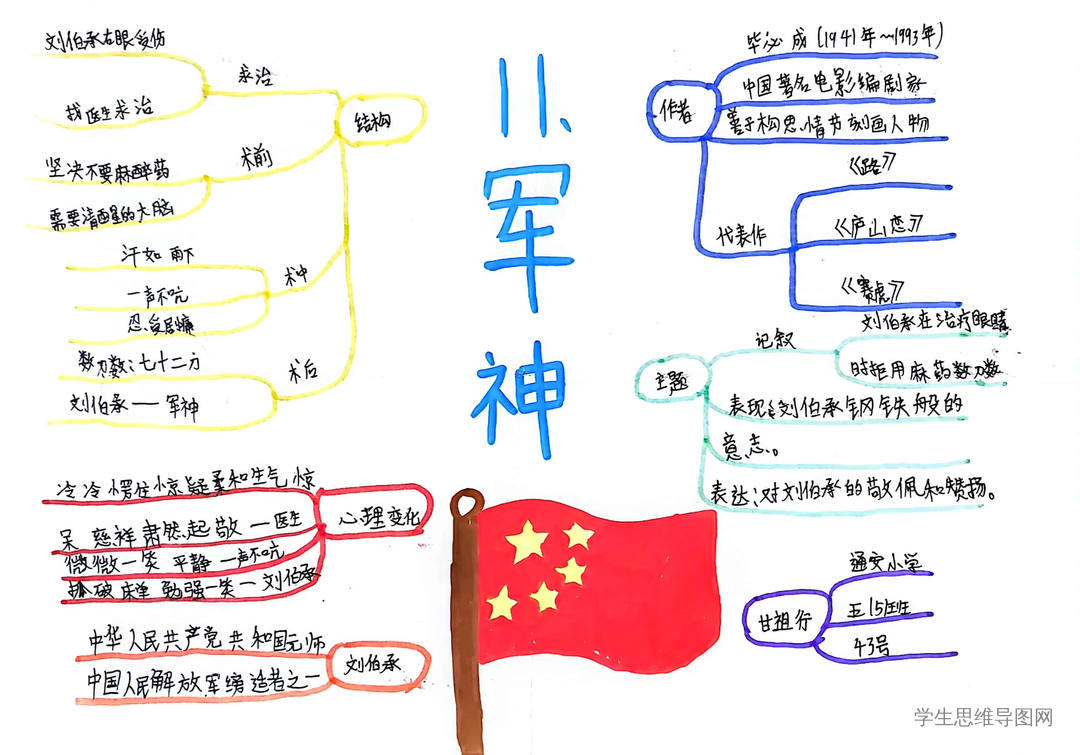 11、军神
刘伯承右眼受伤
求治
找医生求治
结构
坚决不要麻醉药
术前
需要清醒的大脑
汗如雨下
一声不吭
术中
忍受剧痛
数刀数:七十二刀
术后
刘伯承——军神
作者
毕必成(1941年~1993年)
中国著名电影编剧家
善于构思、情节刻画人物
代表作
《路》
《庐山恋》
《赛虎》
主题
记叙
刘伯承在治疗眼睛
时拒用麻药数刀数
表现:刘伯承钢铁般的
意志。
表达:对刘伯承的敬佩和赞扬。
冷冷 愣住 惊疑 柔和 生气 惊
呆 慈祥 肃然起敬 — 医生
心理变化
微微一笑 平静 一声不吭
抓破床单 勉强一笑 — 刘伯承
中华人民共产党共和国元师
刘伯承
中国人民解放军缔造者之一
甘祖行
通安小学
五(5)班
43号
学生思维导图网